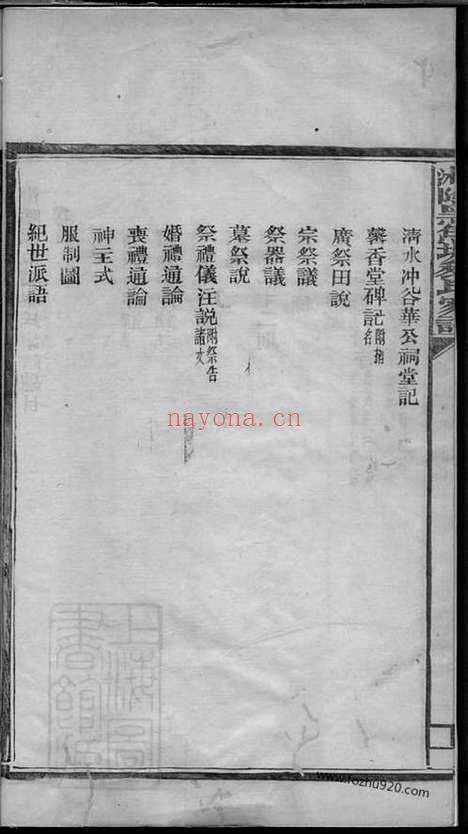 清水冲谷華公祠堂記
馨香堂碑記附捐名
廣祭田說
宗祭議
祭器議
墓祭說
祭禮儀注說附祭告諸文
婚禮通論
喪禮通論
神主式
服制圖
紀世派語
nayona.cn
www.fozhu920.com